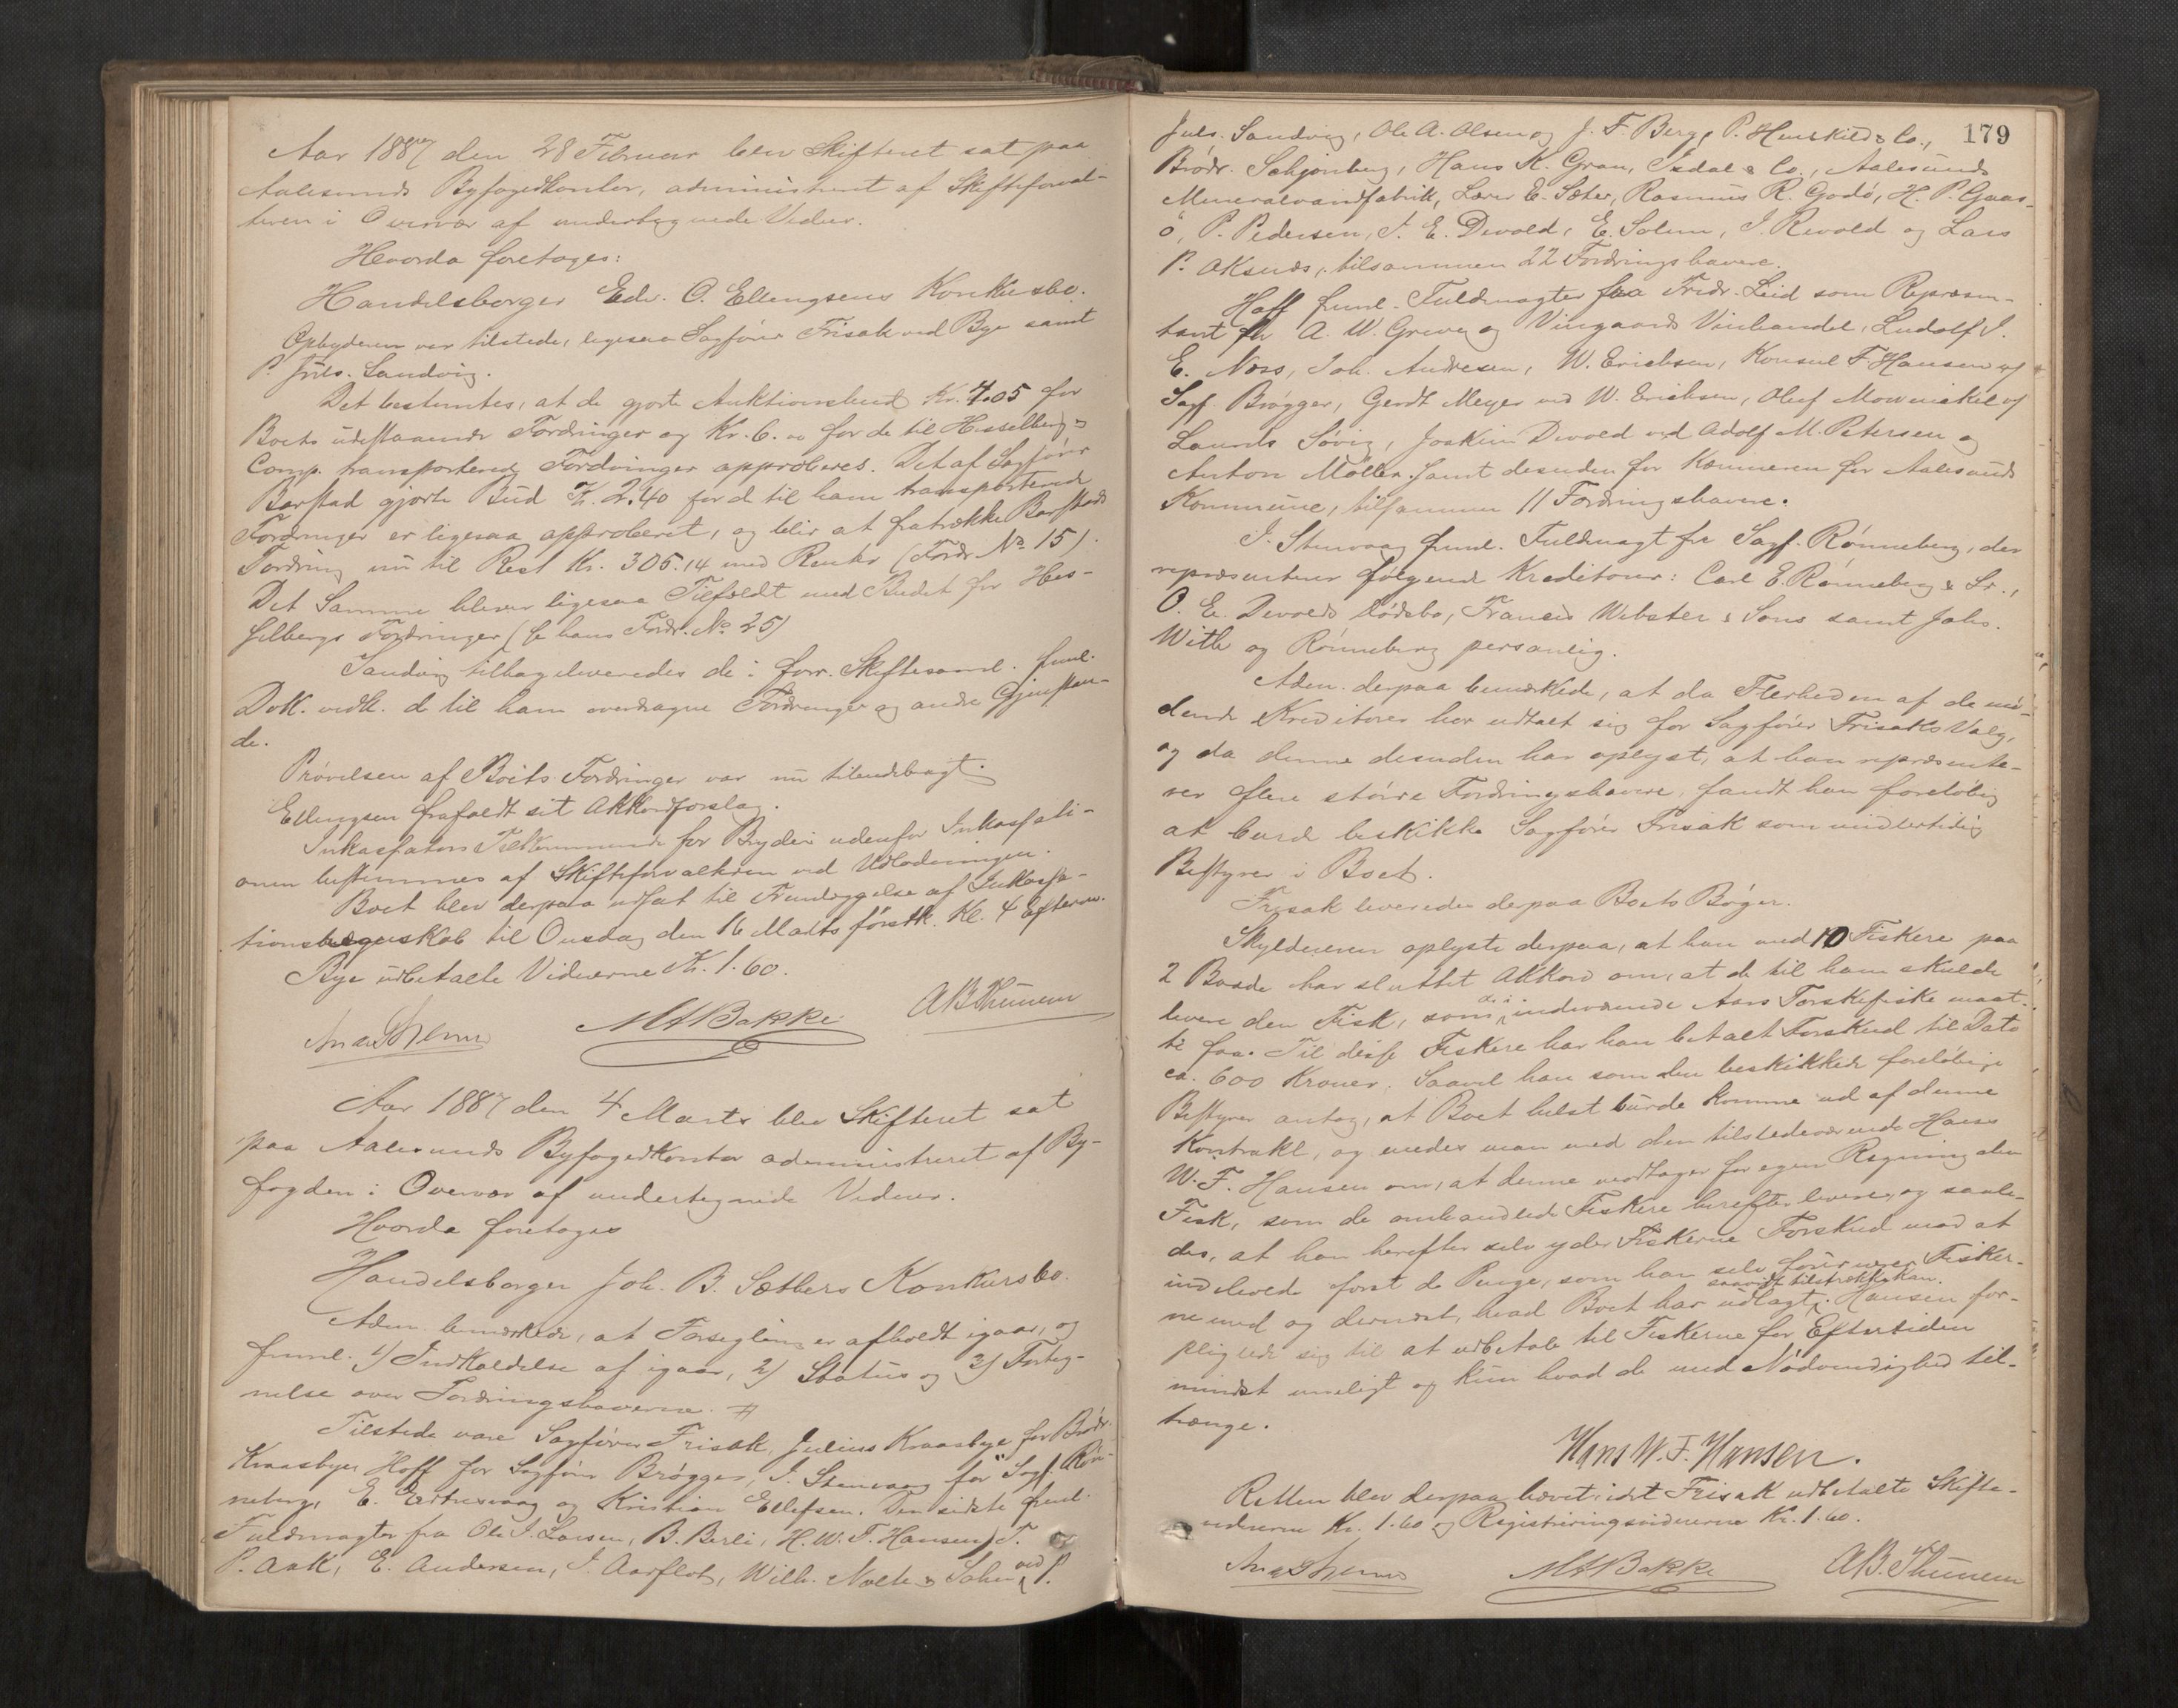 Aar 1887 den 28 Februar blev Skifteret sat paa
Aalesunds Byfogedkontor, administreret af Skifteforval-
teren i Overvær af undertegnede Vidner.
Hvorda foretoges:
Handelsborger Edv. O. Ellengsens Konkursbo.
Opbyderen var tilstede, ligesaa Sagfører Frisak ved Bye samt
P. Juls. Sandvig.
Det bestemtes, at de gjorte Auktionsbud Kr. 4.05 for
Boets udestaaende Fordringer og Kr. 6.00 for de til Hesselberg &
Comp. transporterede Fordringer approberes. Det af Sagfører
Barstad gjorte Bud Kr. 2.40 for de til ham transporterede
Fordringer er ligesaa approberet, og blir at fratrække Barstads
Fordring nu til Rest Kr. 305.14 med Renter (Fordr. No. 15).
Det Samme bliver ligesaa Tilfældt med Budet for Hes-
selbergs Fordringer (se hans Fordr. No. 25)
Sandvig tilbageleveredes de i forr. Skiftesaml. freml.
Dok. vedk. de til ham overdragne Fordringer og andre Gjenstan-
de.
Prøvelsen af Boets Fordringer var nu tilendebragt.
Ellingsen frafaldt sit Akkordforslag.
Inkassators Tilkommende for Bryderi udenfor Inkassati-
onen bestemmes af Skifteforvalteren ved Udlodningen.
Boet blev derpaa udsat til Fremlæggelse af Inkassa-
tionsregnskab til Onsdag den 16 Marts førstk. Kl. 4 Efterm.
Bye udbetalte Vidnerne Kr. 1.60.
MABakke ABThunem
Aar 1887 den 4 Marts blev Skifteret sat
paa Aalesunds Byfogedkontor administreret af By-
fogden i Overvær af undertegnede Vidner.
Hvorda foretoges
Handelsborger Joh. B. Sætbers Konkursbo.
Adm. bemærkede, at Forsegling er afholdt igaar, og
freml. 1) Indkaldelse af igaar, 2) Status og 3) Forteg-
nelse over Fordringshaverne. #
Tilstede vare Sagfører Frisak, Julius Kraasbye for Brødr.
Kraasbye, Hoff for Sagfører Brøgger, J. Stenvaag for Sagf. Røn-
neberg, E. og Kristian Ellefsen. Den sidste freml.
Fuldmagter fra Ole J. Larsen, B. Berli, H. W. F. Hansen, T.
P. Aak, E. Andersen, J. Aarflot, Wilh. Nolte & Sohn ved P.
179
Juls. Sandvig, Ole A. Olsen og J. F. Berg, P. Henskild & Co.,
Brødr. Schjønberg, Hans K. Gran, Isdal & Co., Aalesunds
Mineralvandfabrik, Lærer E. Sæter, Rasmus R. Godø, H. P. Gaas-
ø, P. Pedersen, A. E. Devold, E. Solem, J. Revold og Lars
P. Aksnes, tilsammen 22 Fordringshavere.
Hoff freml. Fuldmagter fra Fredr. Leid som Repræsen-
tant for A. W. Greve og Vingaards Vinhandel, Ludolf J.
E. Næss, Joh. Andresen, W. Erichsen, Konsul F. Hansen og
Sagf. Brøgger, Gerdt Meyer ved W. Erichsen, Oluf Mowinckel og
Laurits Søvig, Joakim Devold ved Adolf M. Petersen og
Anton Møller. Samt desuden for Kæmneren for Aalesunds
Kommune, tilsammen 11 Fordringshavere.
J. Stenvaag freml. Fuldmagt fra Sagf. Rønneberg, der
repræsenterer følgende Kreditorer: Carl E. Rønneberg & Sr.,
O. E. Devolds Dødsbo, Francis Webster & Sons samt Johs.
With og Rønneberg personlig.
Adm. derpaa bemærkede, at da Flerheden af de mø-
dende Kreditorer har udtalt sig for Sagfører Frisaks Valg,
og da denne desuden har oplyst, at han repræsente-
rer flere større Fordringshavere, fandt han foreløbig
at burde beskikke Sagfører Frisak som midlertidig
Bestyrer i Boet.
Frisak leveredes derpaa Boets Bøger.
Skyldneren oplyste derpaa, at han med 10 Fiskere paa
2 Baade har sluttet Akkord om, at de til ham skulde
levere den Fisk, som de i indeværende Aars Torskefiske maat-
te faa. Til disse Fiskere har han betalt Forskud til Dato
ca. 600 Kroner. Saavel han som den beskikkede foreløbige
Bestyrer antog, at Boet helst burde komme ud af denne
Kontrakt, og enedes man med den tilstedeværende Hans
W. F. Hansen om, at denne modtager for egen Regning den
Fisk, som de omhandlede Fiskere herefter levere, og saale-
des, at han herefter selv yder Fiskerne Forskud mod at
indeholde først de Penge, som han selv forsyner Fisker-
ne med og dernæst, hvad Boet har udlagt, saavidt tilstrække kan. Hansen for-
pligtede sig til at udbetale til Fiskerne for Eftertiden
mindst muligt og kun hvad de med Nødvendighed til-
trænge.
Hans W. F. Hansen.
Retten blev derpaa hævet, idet Frisak udbetalte Skifte-
vidnerne Kr. 1.60 og Registreringsvidnerne Kr. 1.60.
MABakke AB. Thunem